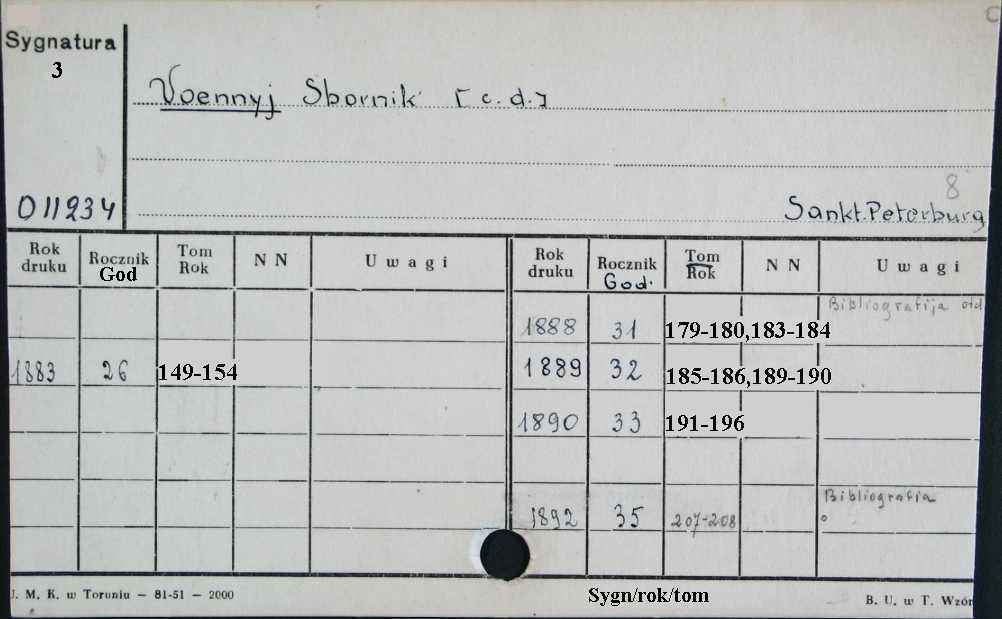 C
Sygnatura
3
Voennyj Sbornik [c.d.]
8
011234
Sankt.Peterburg
Rok druku Rocznik God Tom Rok N N Uwagi Rok druku Rocznik God. Tom Rok N N Uwagi
Bibliografija otd
1888 31 179-180,183-184
1883 26 149-154 1889 32 185-186,189-190
1890 33 191-196
Bibliografia
1892 35 207-208 o
J. M. K. w Toruniu – 81-51 – 2000 Sygn/rok/tom B. U. w T. Wzór